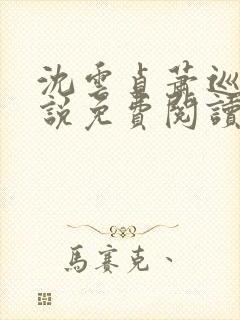 沈雲貞蕭巡
說免費閱讀
馬賽克、